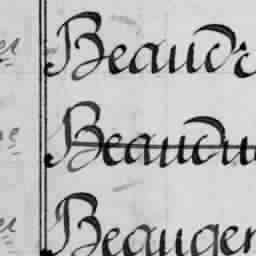 Beaudr
Beaudu
Beauger